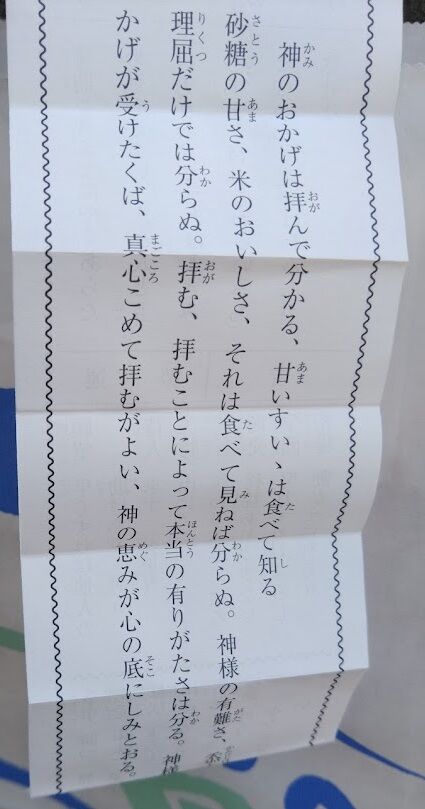 神のおかげは拝んで分かる、甘いすい、は食べて知る
砂糖の甘さ、米のおいしさ、それは食べて見ねば分らぬ。神様の有難さ、
理屈だけでは分らぬ。拝む、拝むことによって本当の有りがたさは分る。神様
かげが受けたくば、真心こめて拝むがよい、神の恵みが心の底にしみとおる。